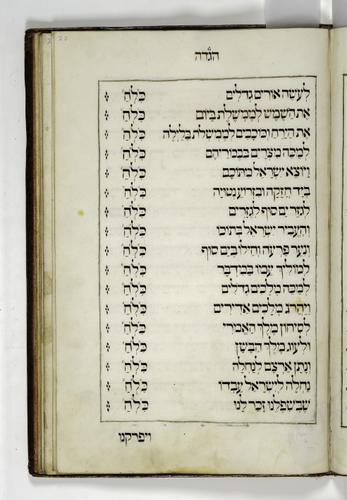 הגדה
לעשה אורים גדלים כלח
את השמש לממשלת ביום כלח
את הירח וכוכבים לממשלת בלילה כלח
למכה מצרים בבכוריהם כלח
ויוצא ישראל מתוכם כלח
ביד חזקה ובזרוע נטויה כלח
לגזר ים סוף לגזרים כלח
והעביר ישראל בתוכו כלח
ונער פרעה וחילו בים סוף כלח
למוליך עמו במדבר כלח
למכה מלכים גדלים כלח
ויהרג מלכים אדירים כלח
לסיחון מלך האמרי כלח
ולעוג מלך הבשן כלח
ונתן ארצם לנחלה כלח
נחלה לישראל עבדו כלח
שבשפלנו זכר לנו כלח
ויפרקנו